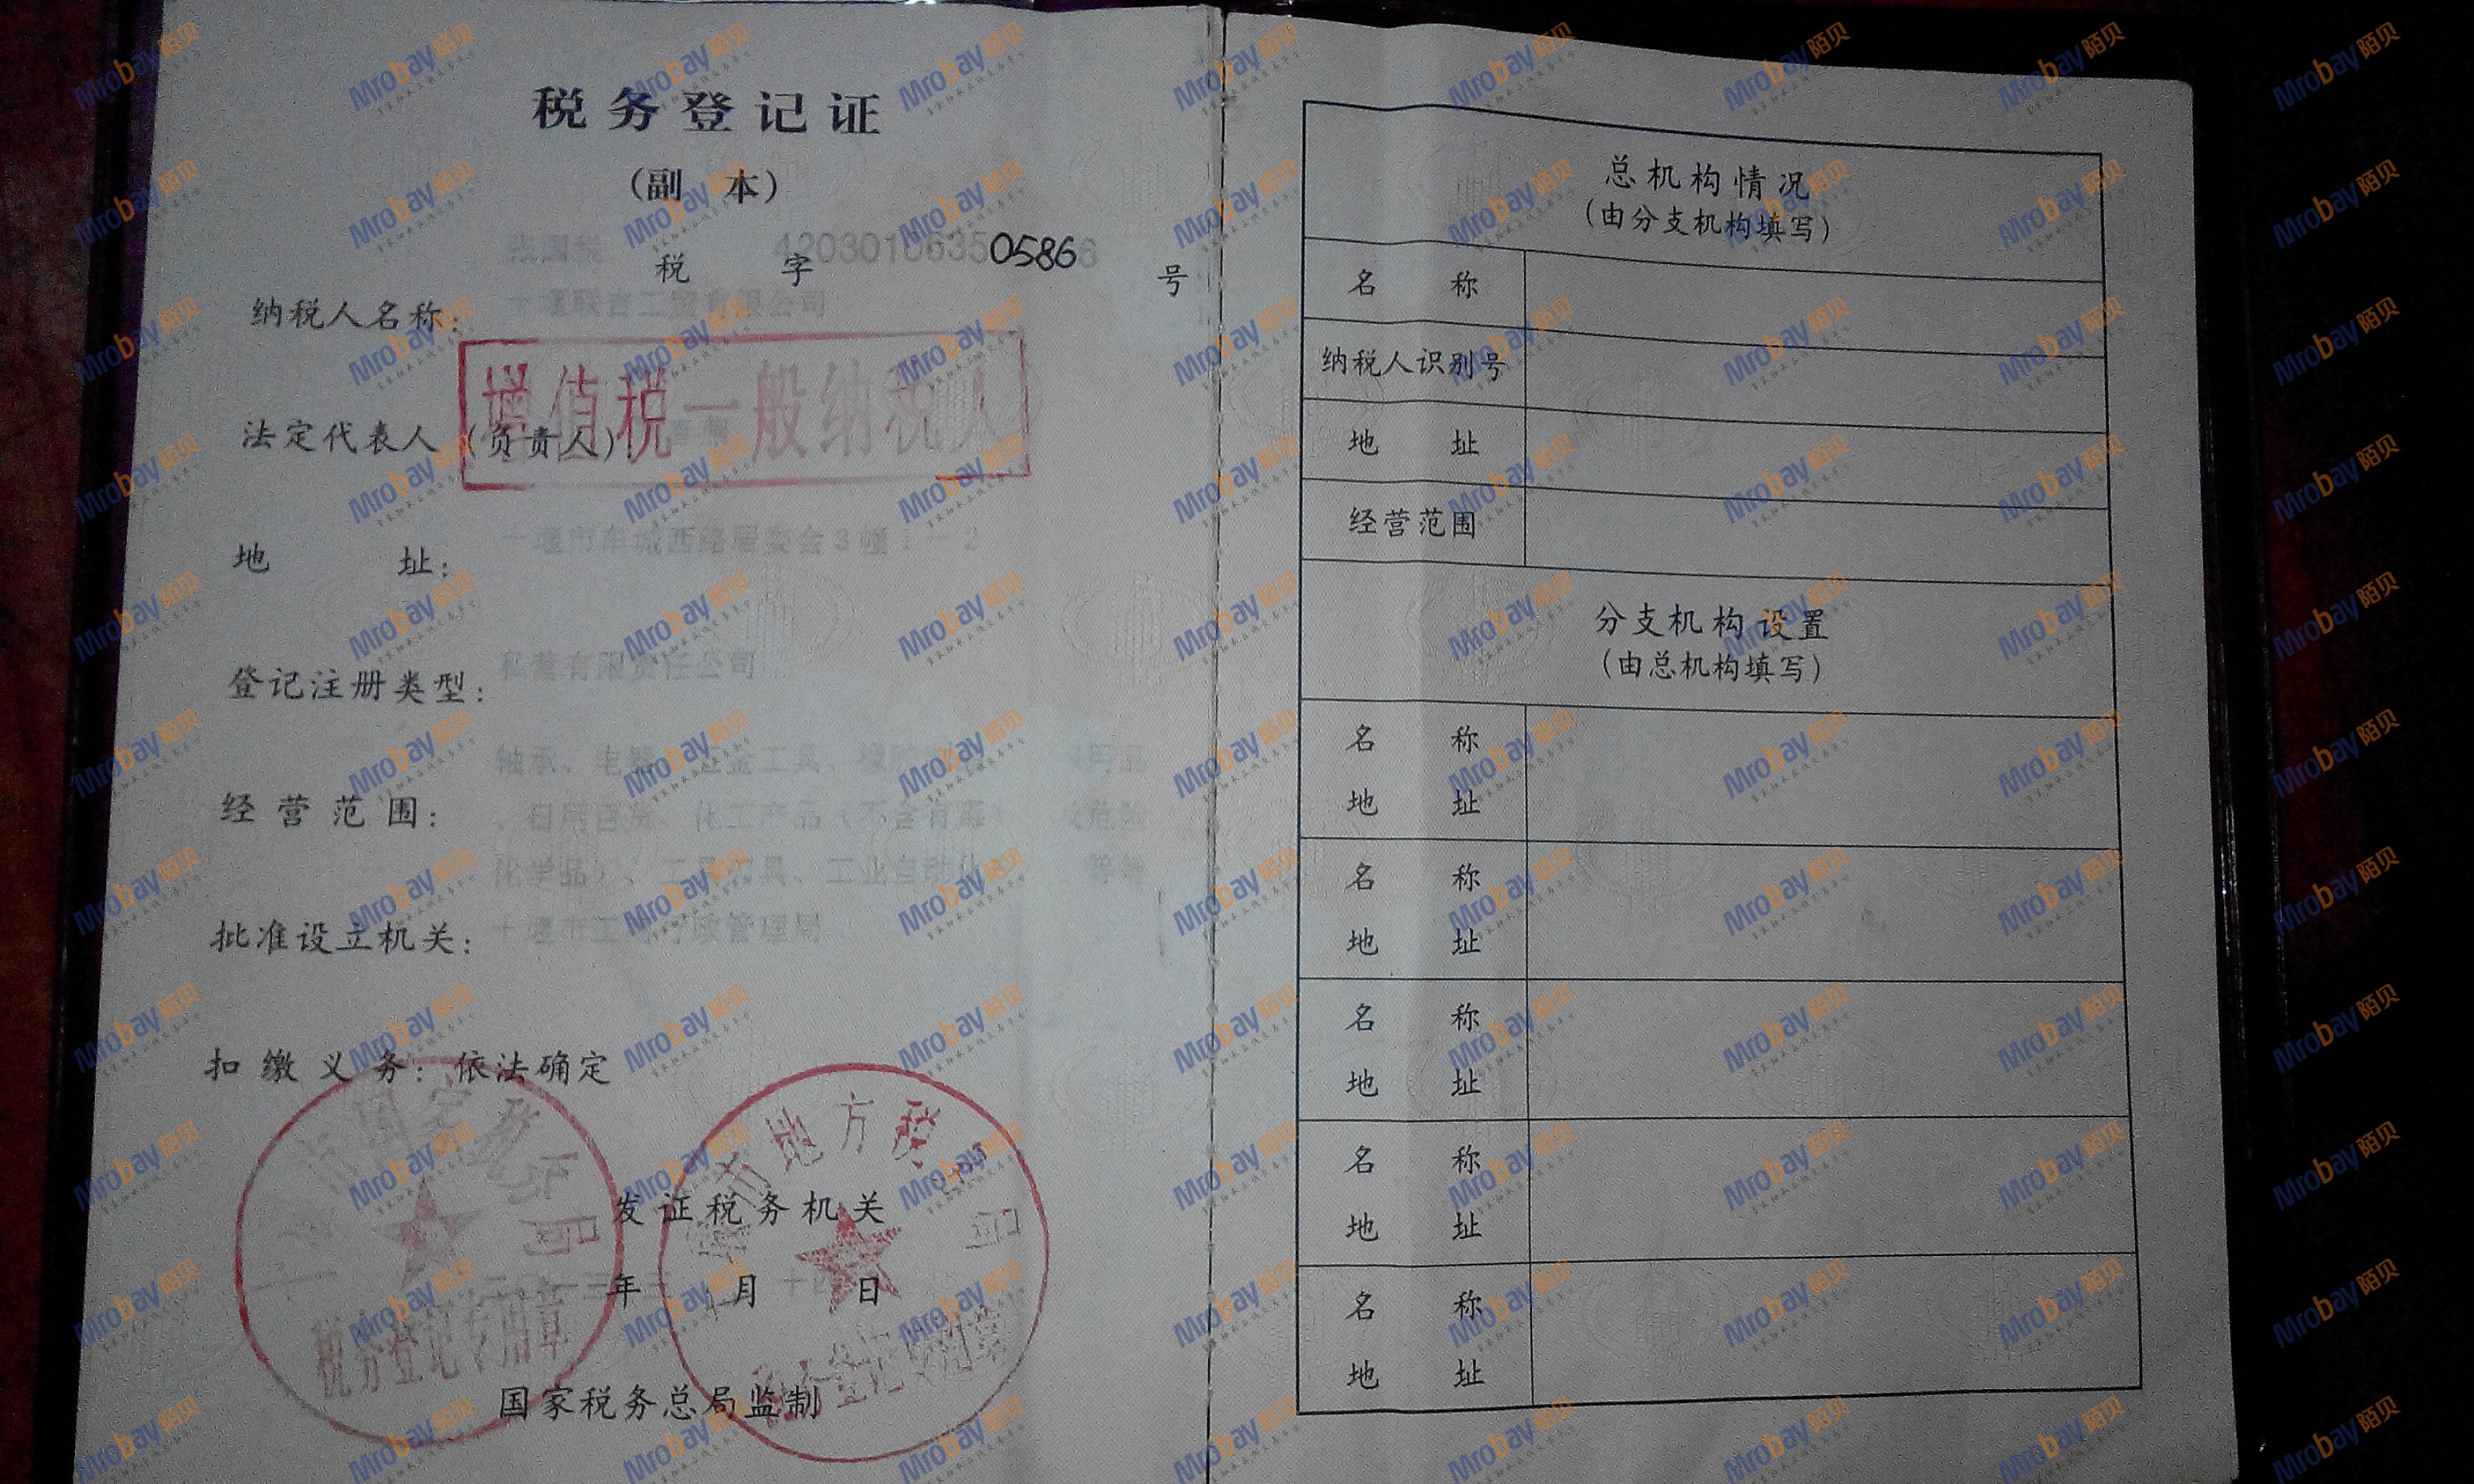 税务登记证
(副 本)
税 字 42030106350586 号
纳税人名称: 十堰联合工贸有限公司
增值税一般纳税人
法定代表人(负责人)
地 址: 十堰市车城西路居委会3幢1-2
登记注册类型: 私营有限责任公司
经营范围: 轴承、电器、五金工具、橡胶
、日用百货、化工产品(不含有
化学品)、工具刃具、工业自动化
批准设立机关: 十堰市工商行政管理局
扣缴义务: 依法确定
市国家税务局
市地方税
发证税务机关
年 月 日
税务登记专用章
税务登记专用章
国家税务总局监制
总机构情况
(由分支机构填写)
名 称
纳税人识别号
地 址
经营范围
分支机构设置
(由总机构填写)
名 称
地 址
名 称
地 址
名 称
地 址
名 称
地 址
名 称
地 址
Mrobay陌贝